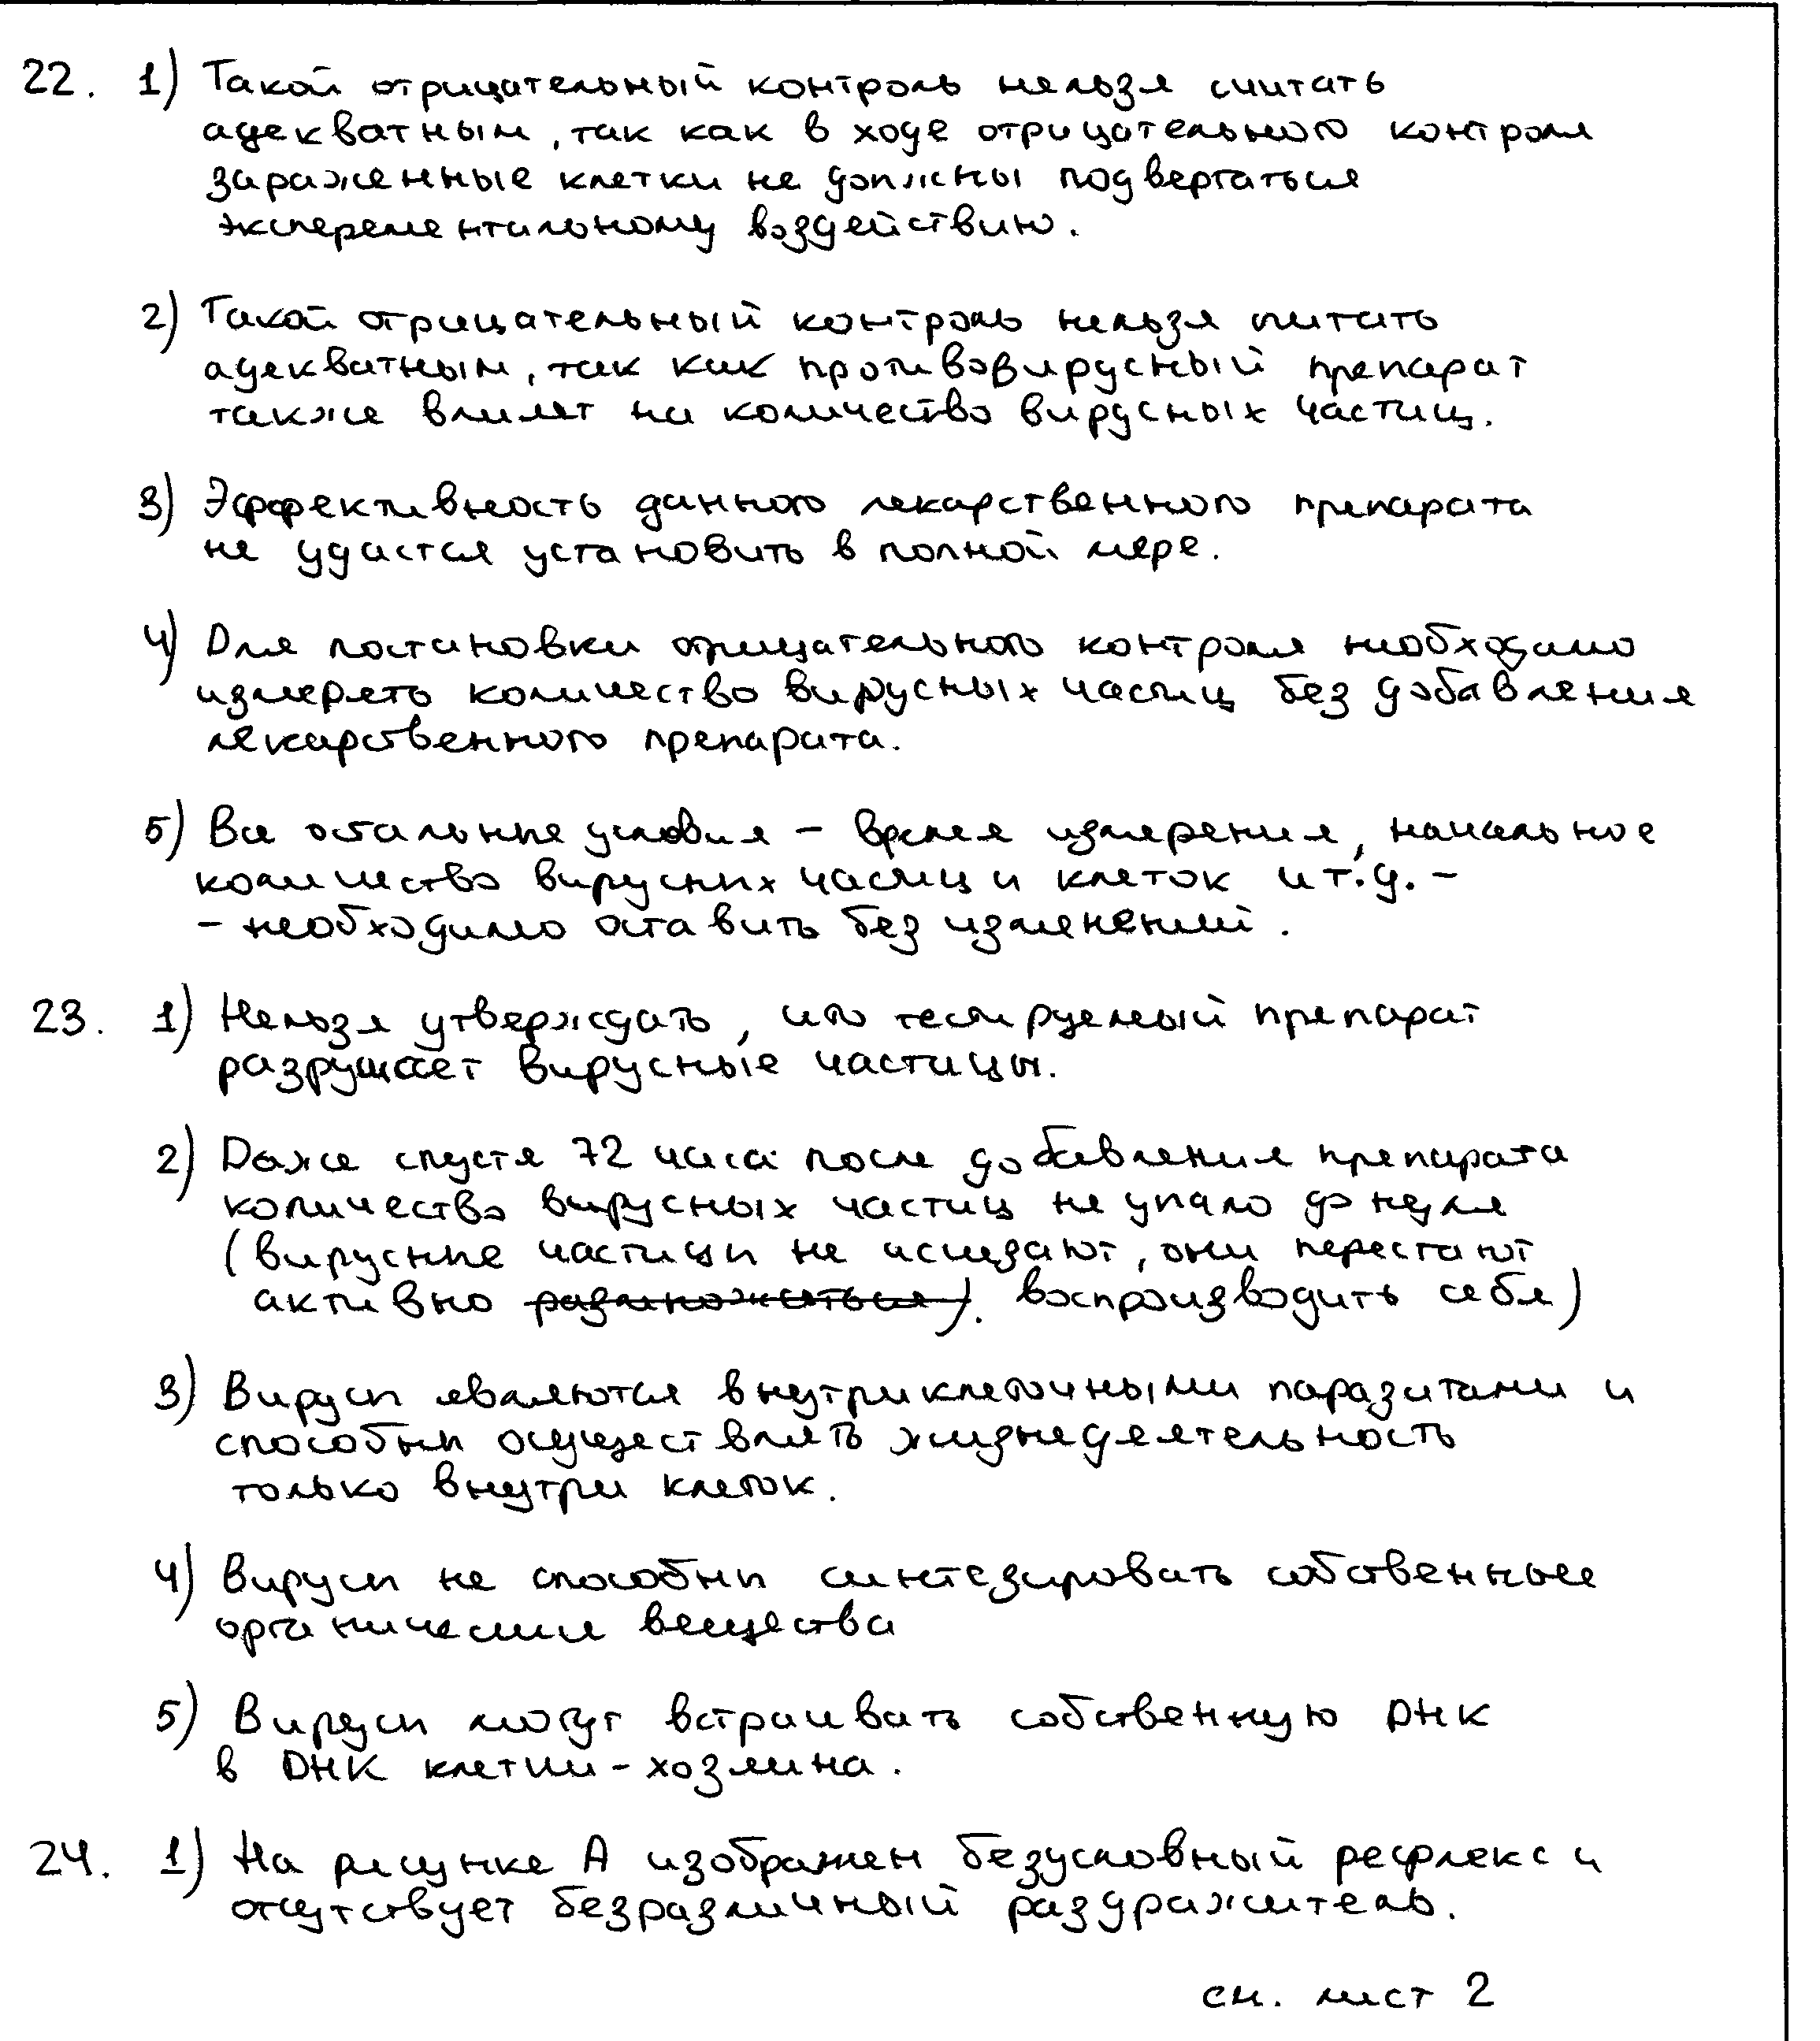 22. 1) Такой отрицательный контроль нельзя считать
адекватным, так как в ходе отрицательного контроля
зараженные клетки не должны подвергаться
эксперементальному воздействию.
2) Такой отрицательный контроль нельзя считать
адекватным, так как противовирусный препарат
также влияет на количество вирусных частиц.
3) Эффективность данного лекарственного препарата
не удастся установить в полной мере.
4) Для постановки отрицательного контроля необходимо
измерять количество вирусных частиц без добавления
лекарственного препарата.
5) Все остальные условия - время измерения, начальное
количество вирусных частиц и клеток и т.д. -
- необходимо оставить без изменений.
23. 1) Нельзя утверждать, что тестируемый препарат
разрушает вирусные частицы.
2) Даже спустя 72 часа после добавления препарата
количество вирусных частиц не упало до нуля
(вирусные частицы не исчезают, они перестают
активно размножаться). воспроизводить себя)
3) Вирусы являются внутриклеточными паразитами и
способны осуществлять жизнедеятельность
только внутри клеток.
4) Вирусы не способны синтезировать собственные
органические вещества
5) Вирусы могут встраивать собственную ДНК
в ДНК клетки-хозяина.
24. 1) На рисунке А изображен безусловный рефлекс и
отсутствует безразличный раздражитель.
см. лист 2